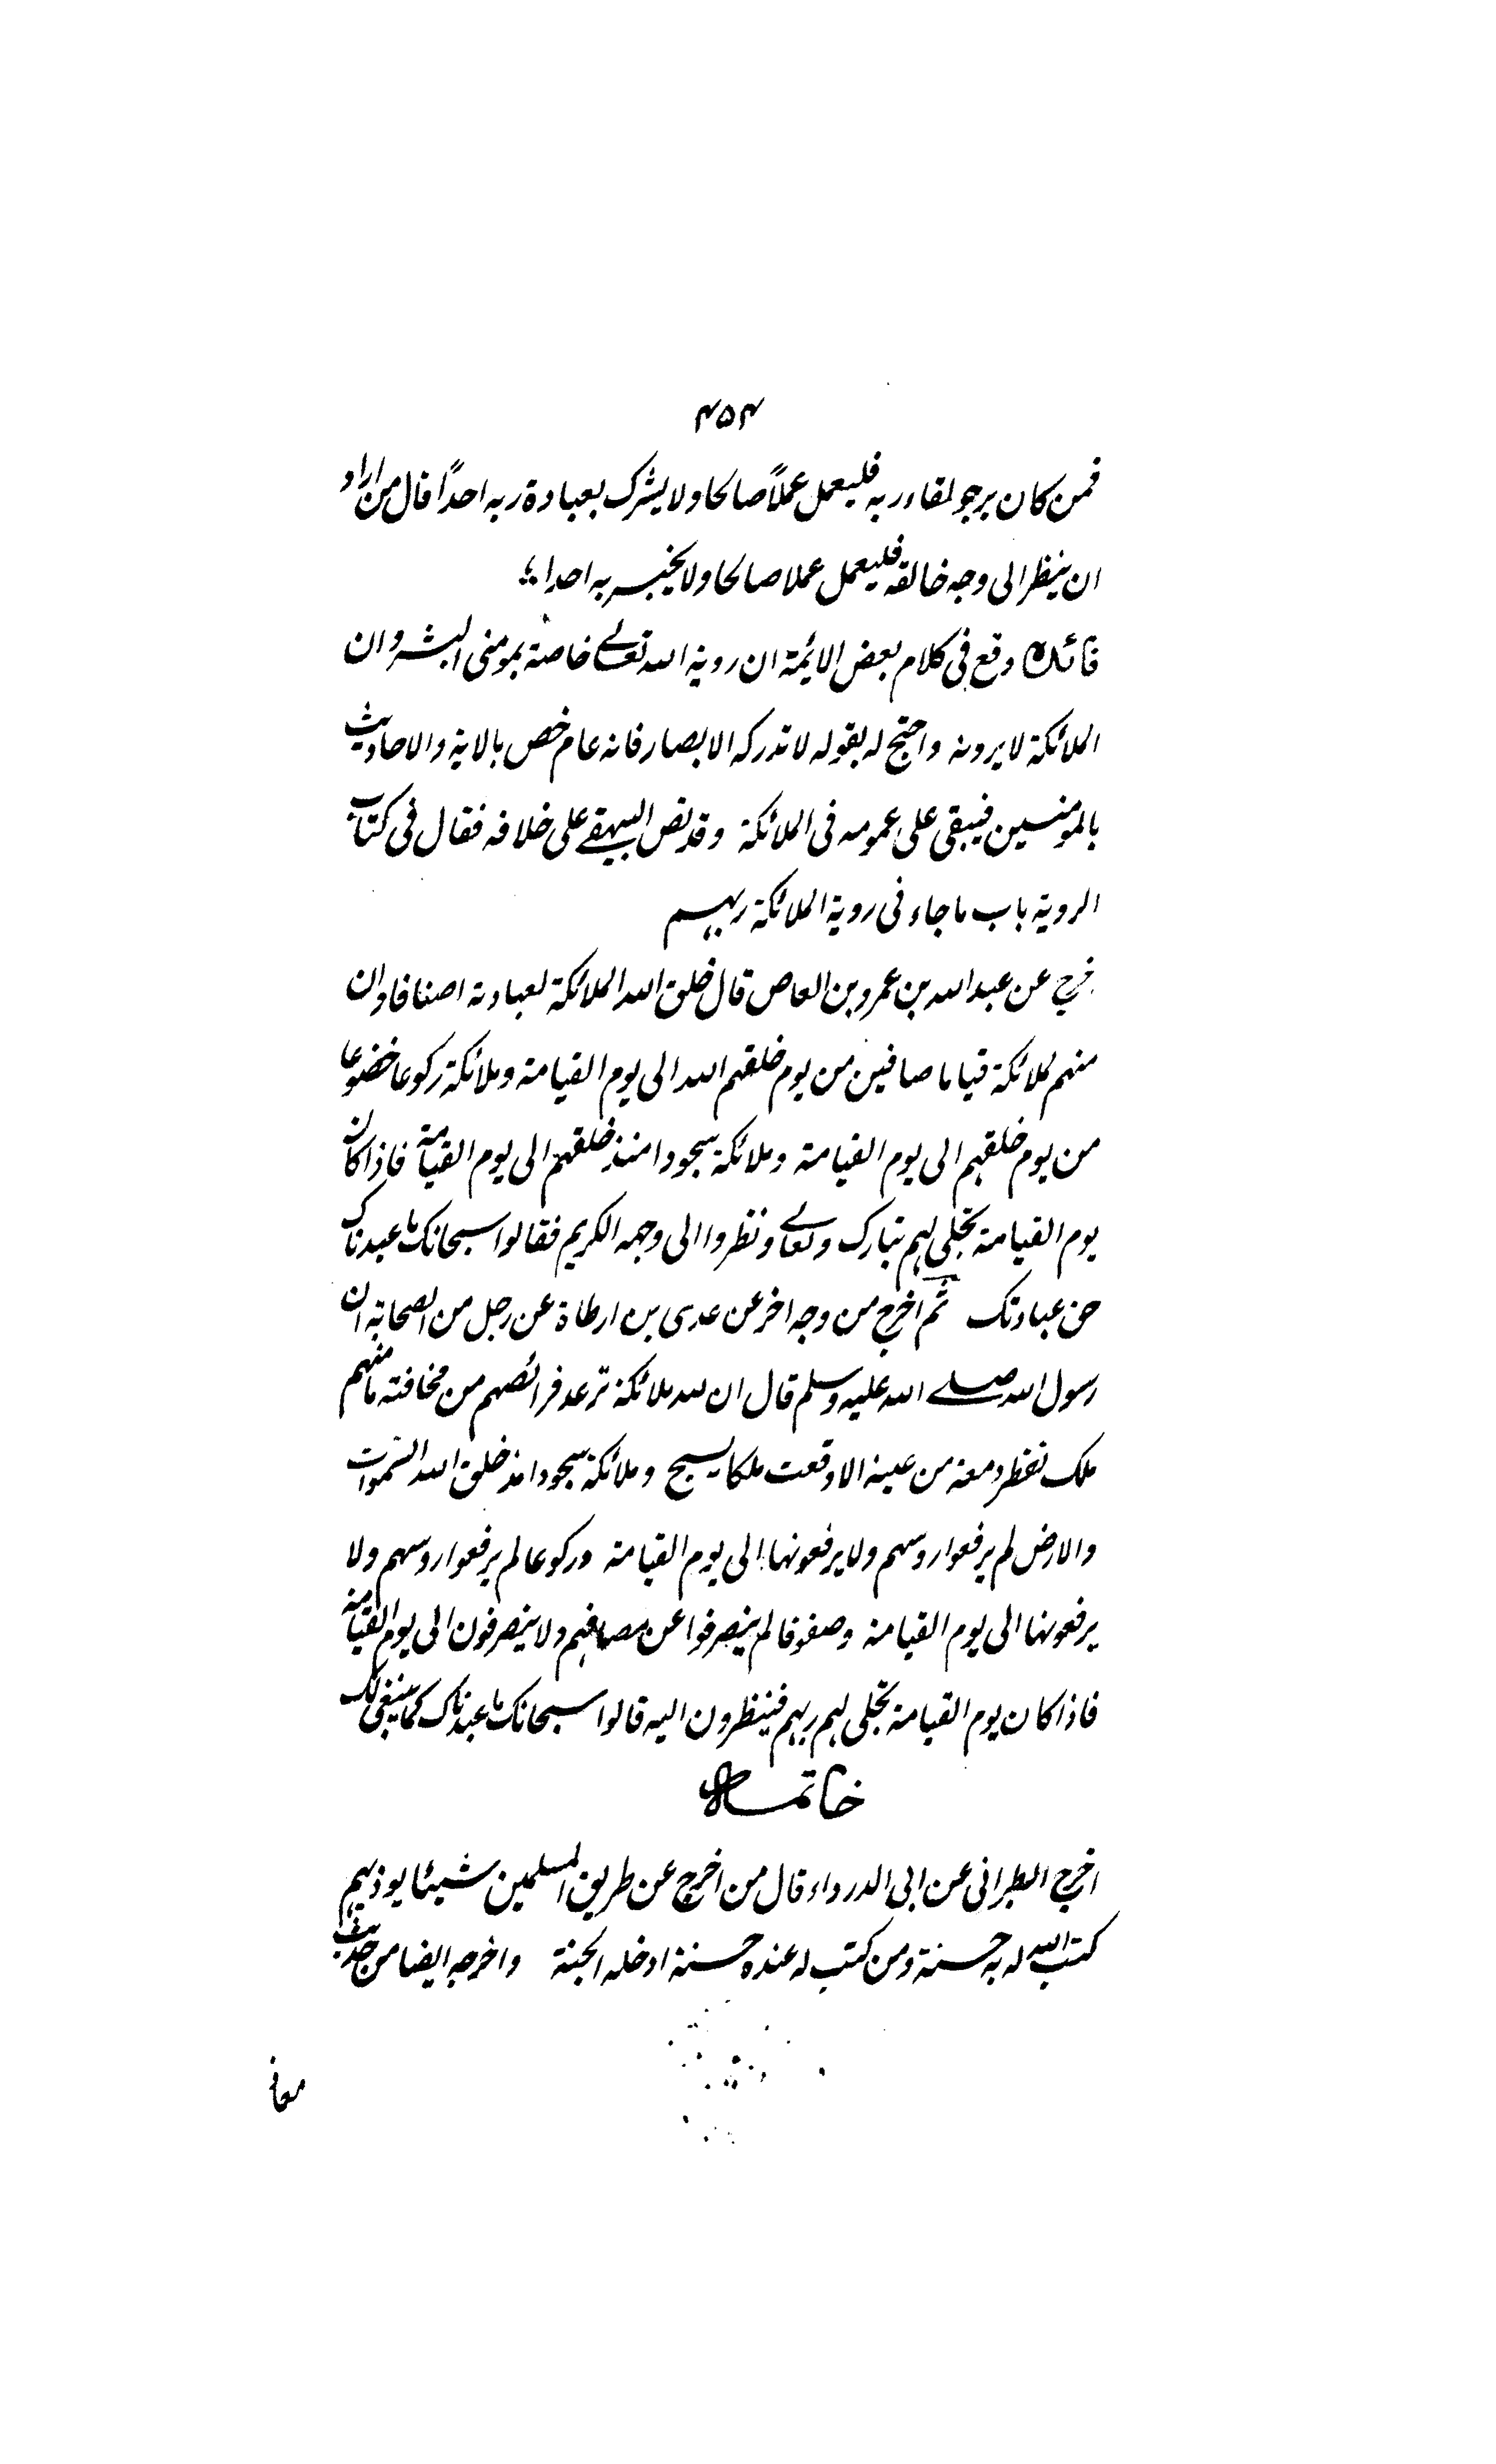 ۴۵۴
فمن كان يرجو لقاء ربه فليعمل عملاً صالحا ولا يشرك بعبادة ربه احداً قال من اراد
ان ينظر الى وجه خالقه فليعمل عملا صالحا ولا يخبر به احدا ؛
فائدة وقع فى كلام بعض الائمة ان روية الله تعالے خاصة بمومنى البشر وان
الملائكة لا يرونه واحتج له بقوله لا تدركه الابصار فانه عام خص بالاية والاحاديث
بالمومنين فيبقى على عمومه فى الملائكة وقد نص البيهقے على خلافه فقال فى كتاب
الروية باب ما جاء فى روية الملائكة ربهم
خرج عن عبد الله بن عمرو بن العاص قال خلق الله الملائكة لعبادته اصنافا وان
منهم لملائكة قياما صافين من يوم خلقهم الله الى يوم القيامة وملائكة ركوعا خضوعا
من يوم خلقهم الى يوم القيامة وملائكة سجودا منذ خلقهم الى يوم القيامة فاذا كان
يوم القيامة تجلى لهم تبارك وتعالے ونظروا الى وجهه الكريم فقالوا سبحانك ما عبدناك
حق عبادتك ثم اخرج من وجه اخر عن عدى بن ارطاة عن رجل من الصحابة ان
رسول الله صلے الله عليه وسلم قال ان لله ملائكة ترعد فرائصهم من مخافته ما منهم
ملك تقطر دمعة من عينه الا وقعت ملكا يسبح وملائكة سجودا منذ خلق الله السموات
والارض لم يرفعوا روسهم ولا يرفعونها الى يوم القيامة وركوعا لم يرفعوا روسهم ولا
يرفعونها الى يوم القيامة وصفوفا لم ينصرفوا عن مصافهم ولا ينصرفون الى يوم القيامة
فاذا كان يوم القيامة تجلى لهم ربهم فينظرون اليه قالوا سبحانك ما عبدناك كما ينبغى لك
خاتمة
اخرج الطبرانى عن ابى الدرداء قال من اخرج عن طريق المسلمين شيئا يوذيهم
كتب الله له به حسنة ومن كتب له عنده حسنة ادخله الجنة واخرجه ايضا من حديث
معاذ